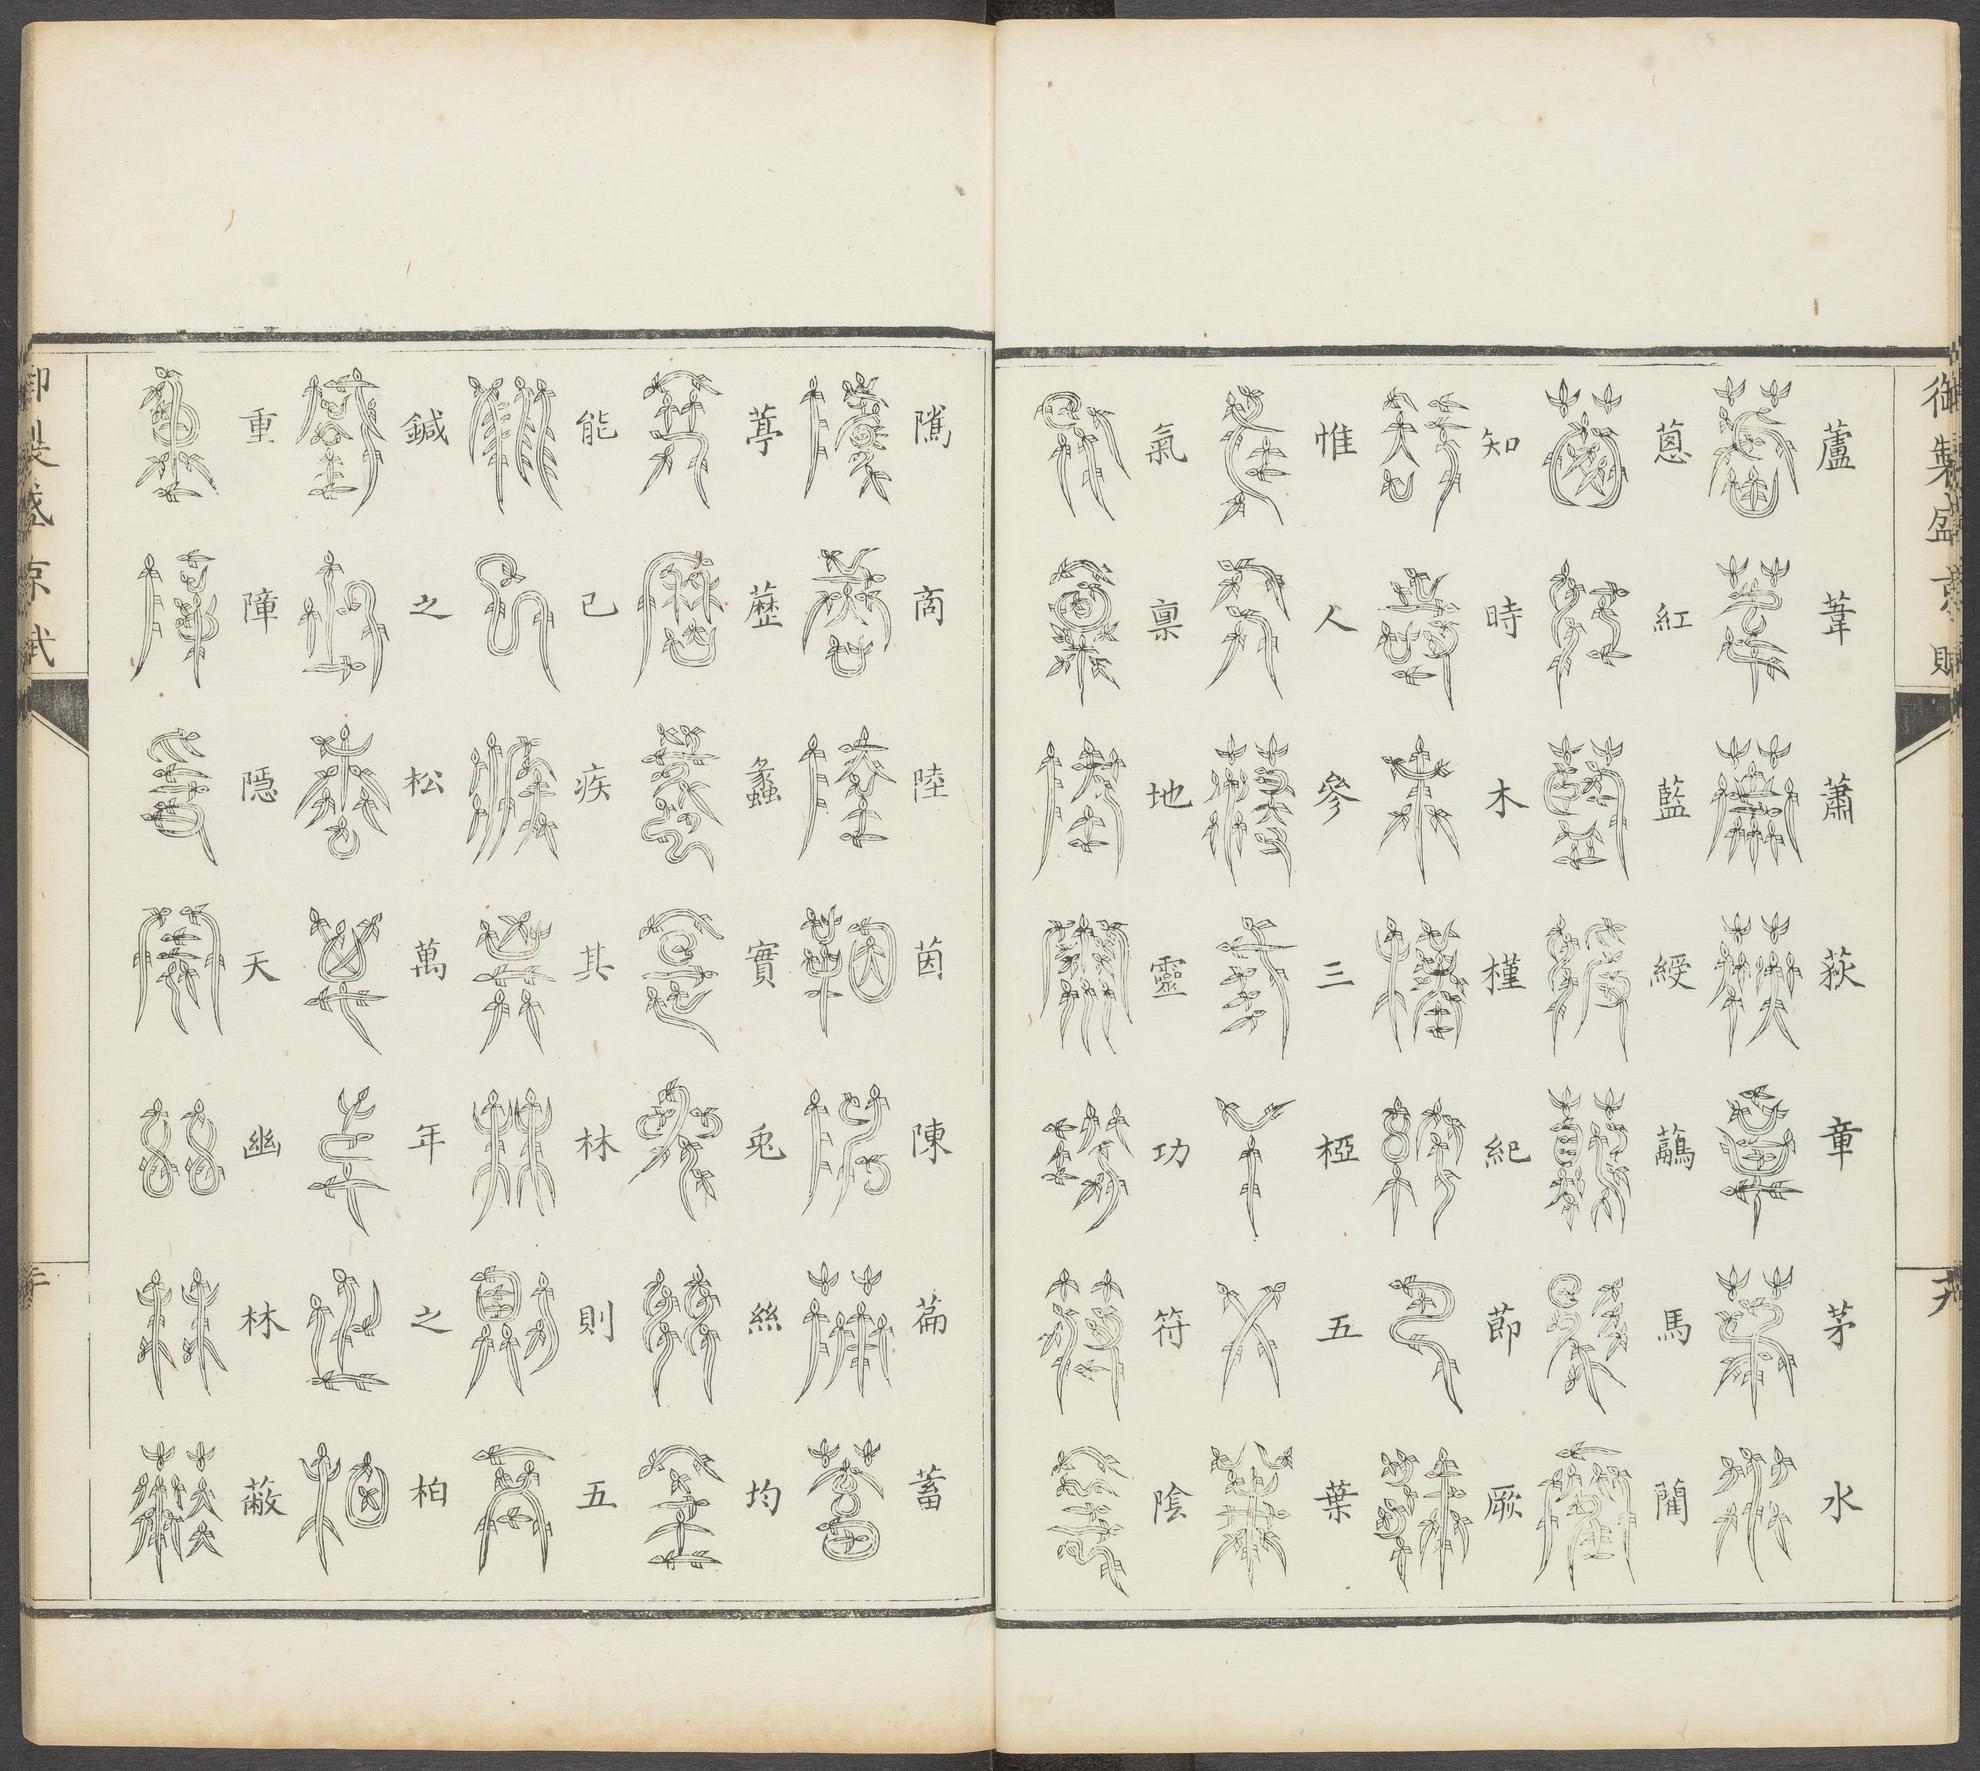 御製盛京賦
蘆葦蕭荻章茅水
蔥紅藍綬虉馬藺
知時木槿紀莭厥
惟人參三椏五葉
氣稟地靈功符陰
隲商陸茵陳萹蓄
葶藶蠡實兎絲均
能已疾其林則五
鍼之松萬年之柏
重障隱天幽林蔽
御製盛京賦